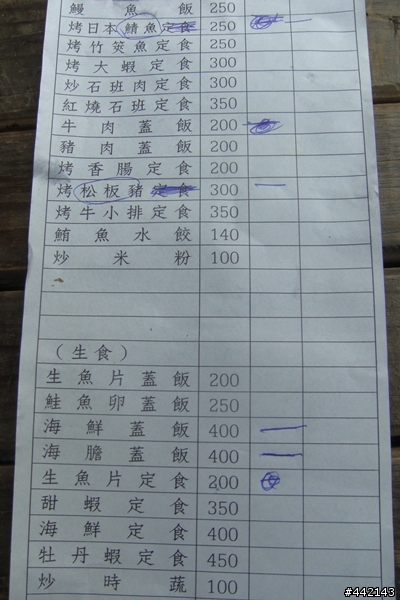 鰻魚飯 250
烤日本鯖魚定食 250
烤竹筴魚定食 250
烤大蝦定食 300
炒石班肉定食 300
紅燒石班定食 350
牛肉蓋飯 200
豬肉蓋飯 200
烤香腸定食 200
烤松板豬定食 300
烤牛小排定食 350
鮪魚水餃 140
炒米粉 100
(生食)
生魚片蓋飯 200
鮭魚卵蓋飯 250
海鮮蓋飯 400
海膽蓋飯 400
生魚片定食 200
甜蝦定食 350
海鮮定食 400
牡丹蝦定食 450
炒時蔬 100
#442143